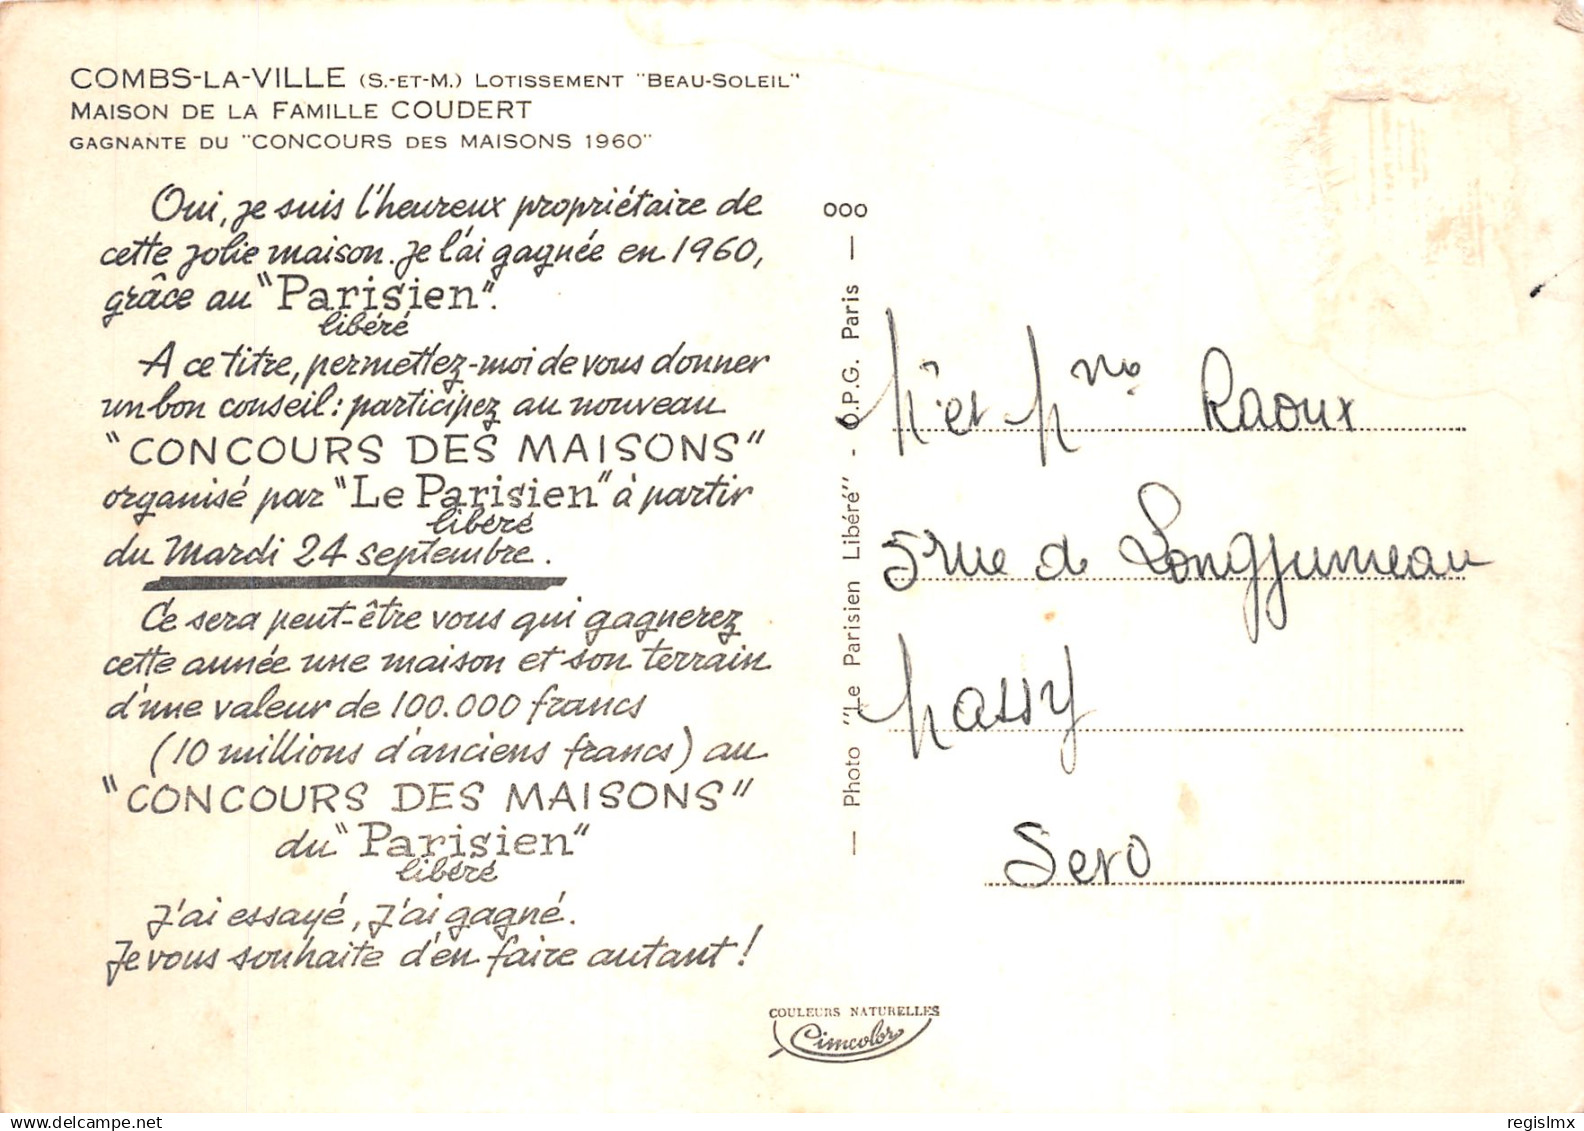 COMBS-LA-VILLE (S.-ET-M.) LOTISSEMENT "BEAU-SOLEIL"
MAISON DE LA FAMILLE COUDERT
GAGNANTE DU "CONCOURS DES MAISONS 1960"
Oui, je suis l'heureux propriétaire de
cette jolie maison. Je l'ai gagnée en 1960,
grâce au "Parisien".
libéré
A ce titre, permettez-moi de vous donner
un bon conseil : participez au nouveau
"CONCOURS DES MAISONS"
organisé par "Le Parisien" à partir
libéré
du Mardi 24 septembre.
Ce sera peut-être vous qui gagnerez
cette année une maison et son terrain
d'une valeur de 100.000 francs
(10 millions d'anciens francs) au
"CONCOURS DES MAISONS"
du "Parisien"
libéré
J'ai essayé, j'ai gagné.
Je vous souhaite d'en faire autant !
000
— Photo "Le Parisien Libéré" - O.P.G. Paris —
Mr et Mme Raoux
5 rue de Longjumeau
Massy
S et O
COULEURS NATURELLES
Cimcolor
regislmx